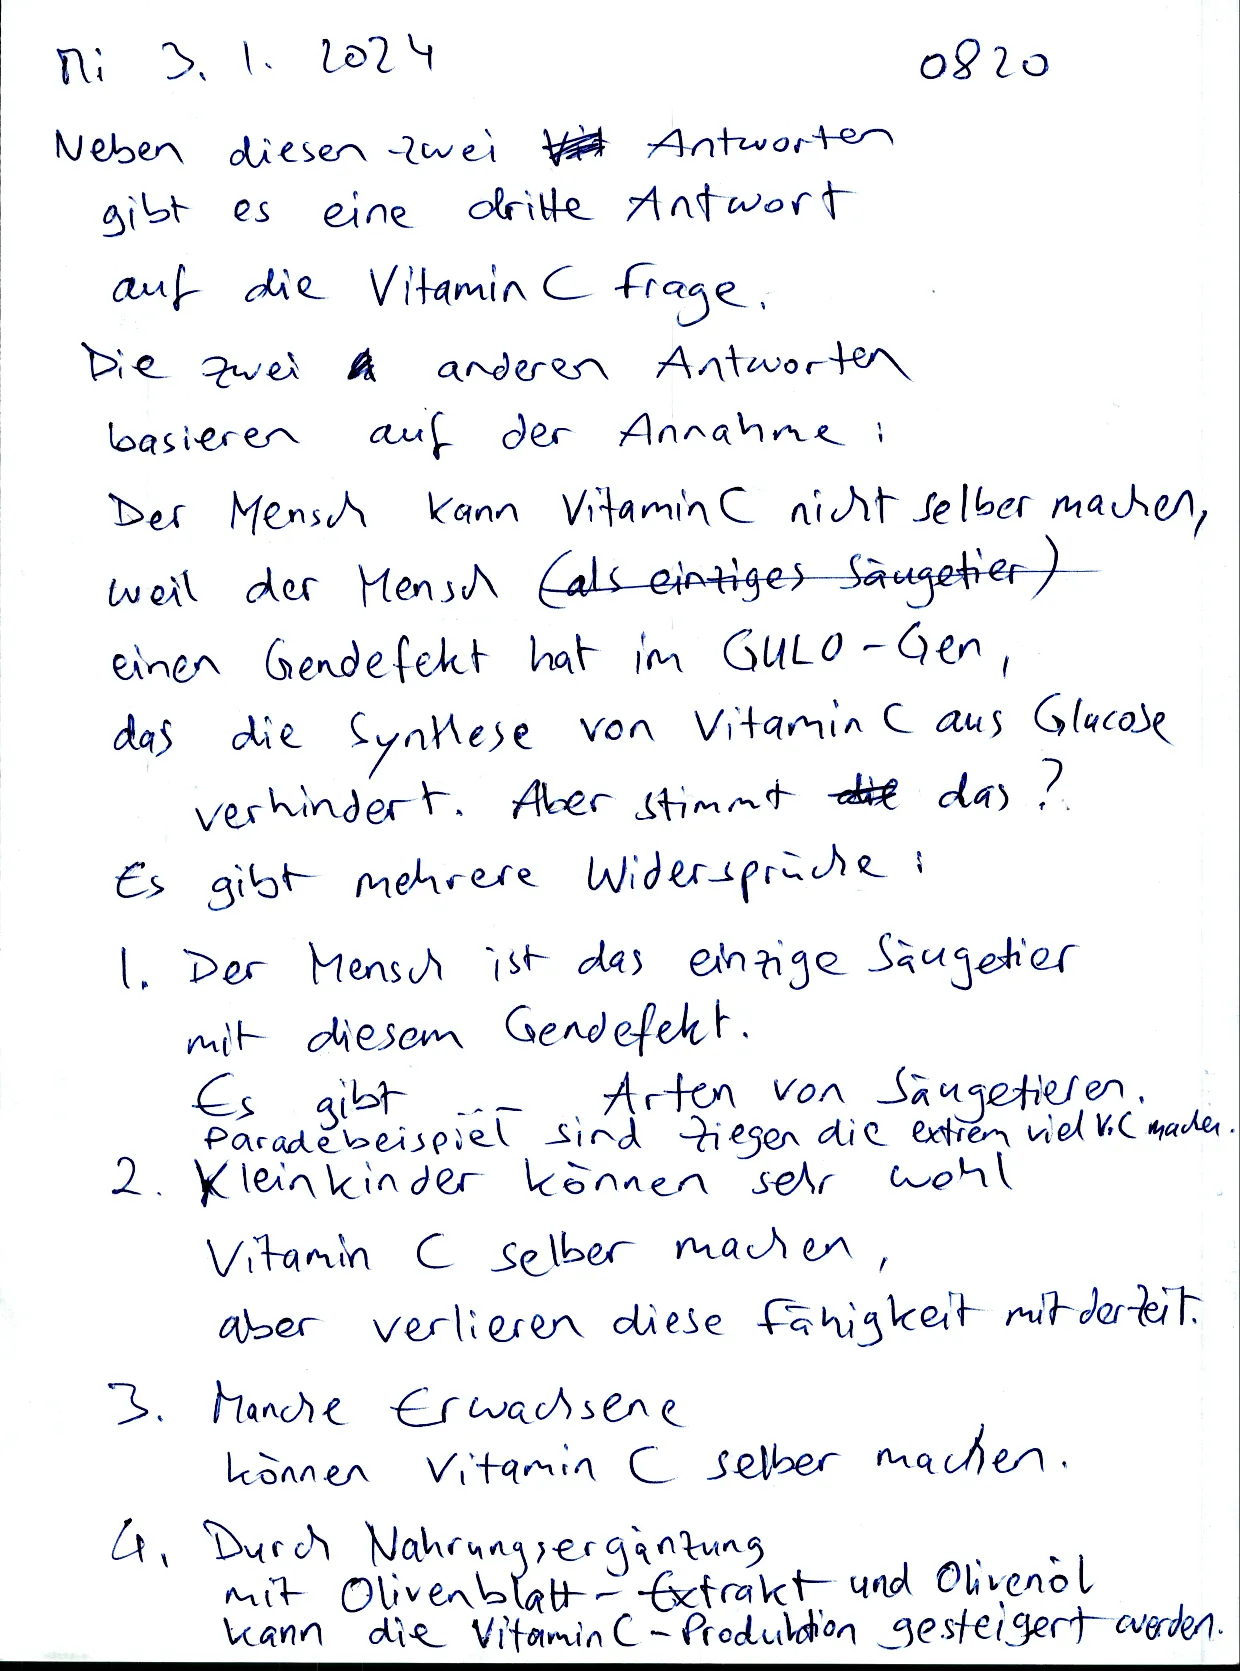 Mi 3. 1. 2024 0820
Neben diesen zwei Antworten
gibt es eine dritte Antwort
auf die Vitamin C Frage.
Die zwei anderen Antworten
basieren auf der Annahme:
Der Mensch kann Vitamin C nicht selber machen,
weil der Mensch (als einziges Säugetier)
einen Gendefekt hat im GULO-Gen,
das die Synthese von Vitamin C aus Glucose
verhindert. Aber stimmt die das?
Es gibt mehrere Widersprüche:
1. Der Mensch ist das einzige Säugetier
mit diesem Gendefekt.
Es gibt ... Arten von Säugetieren.
Paradebeispiel sind Ziegen die extrem viel V.C machen.
2. Kleinkinder können sehr wohl
Vitamin C selber machen,
aber verlieren diese Fähigkeit mit der Zeit.
3. Manche Erwachsene
können Vitamin C selber machen.
4. Durch Nahrungsergänzung
mit Olivenblatt-Extrakt und Olivenöl
kann die Vitamin C-Produktion gesteigert werden.